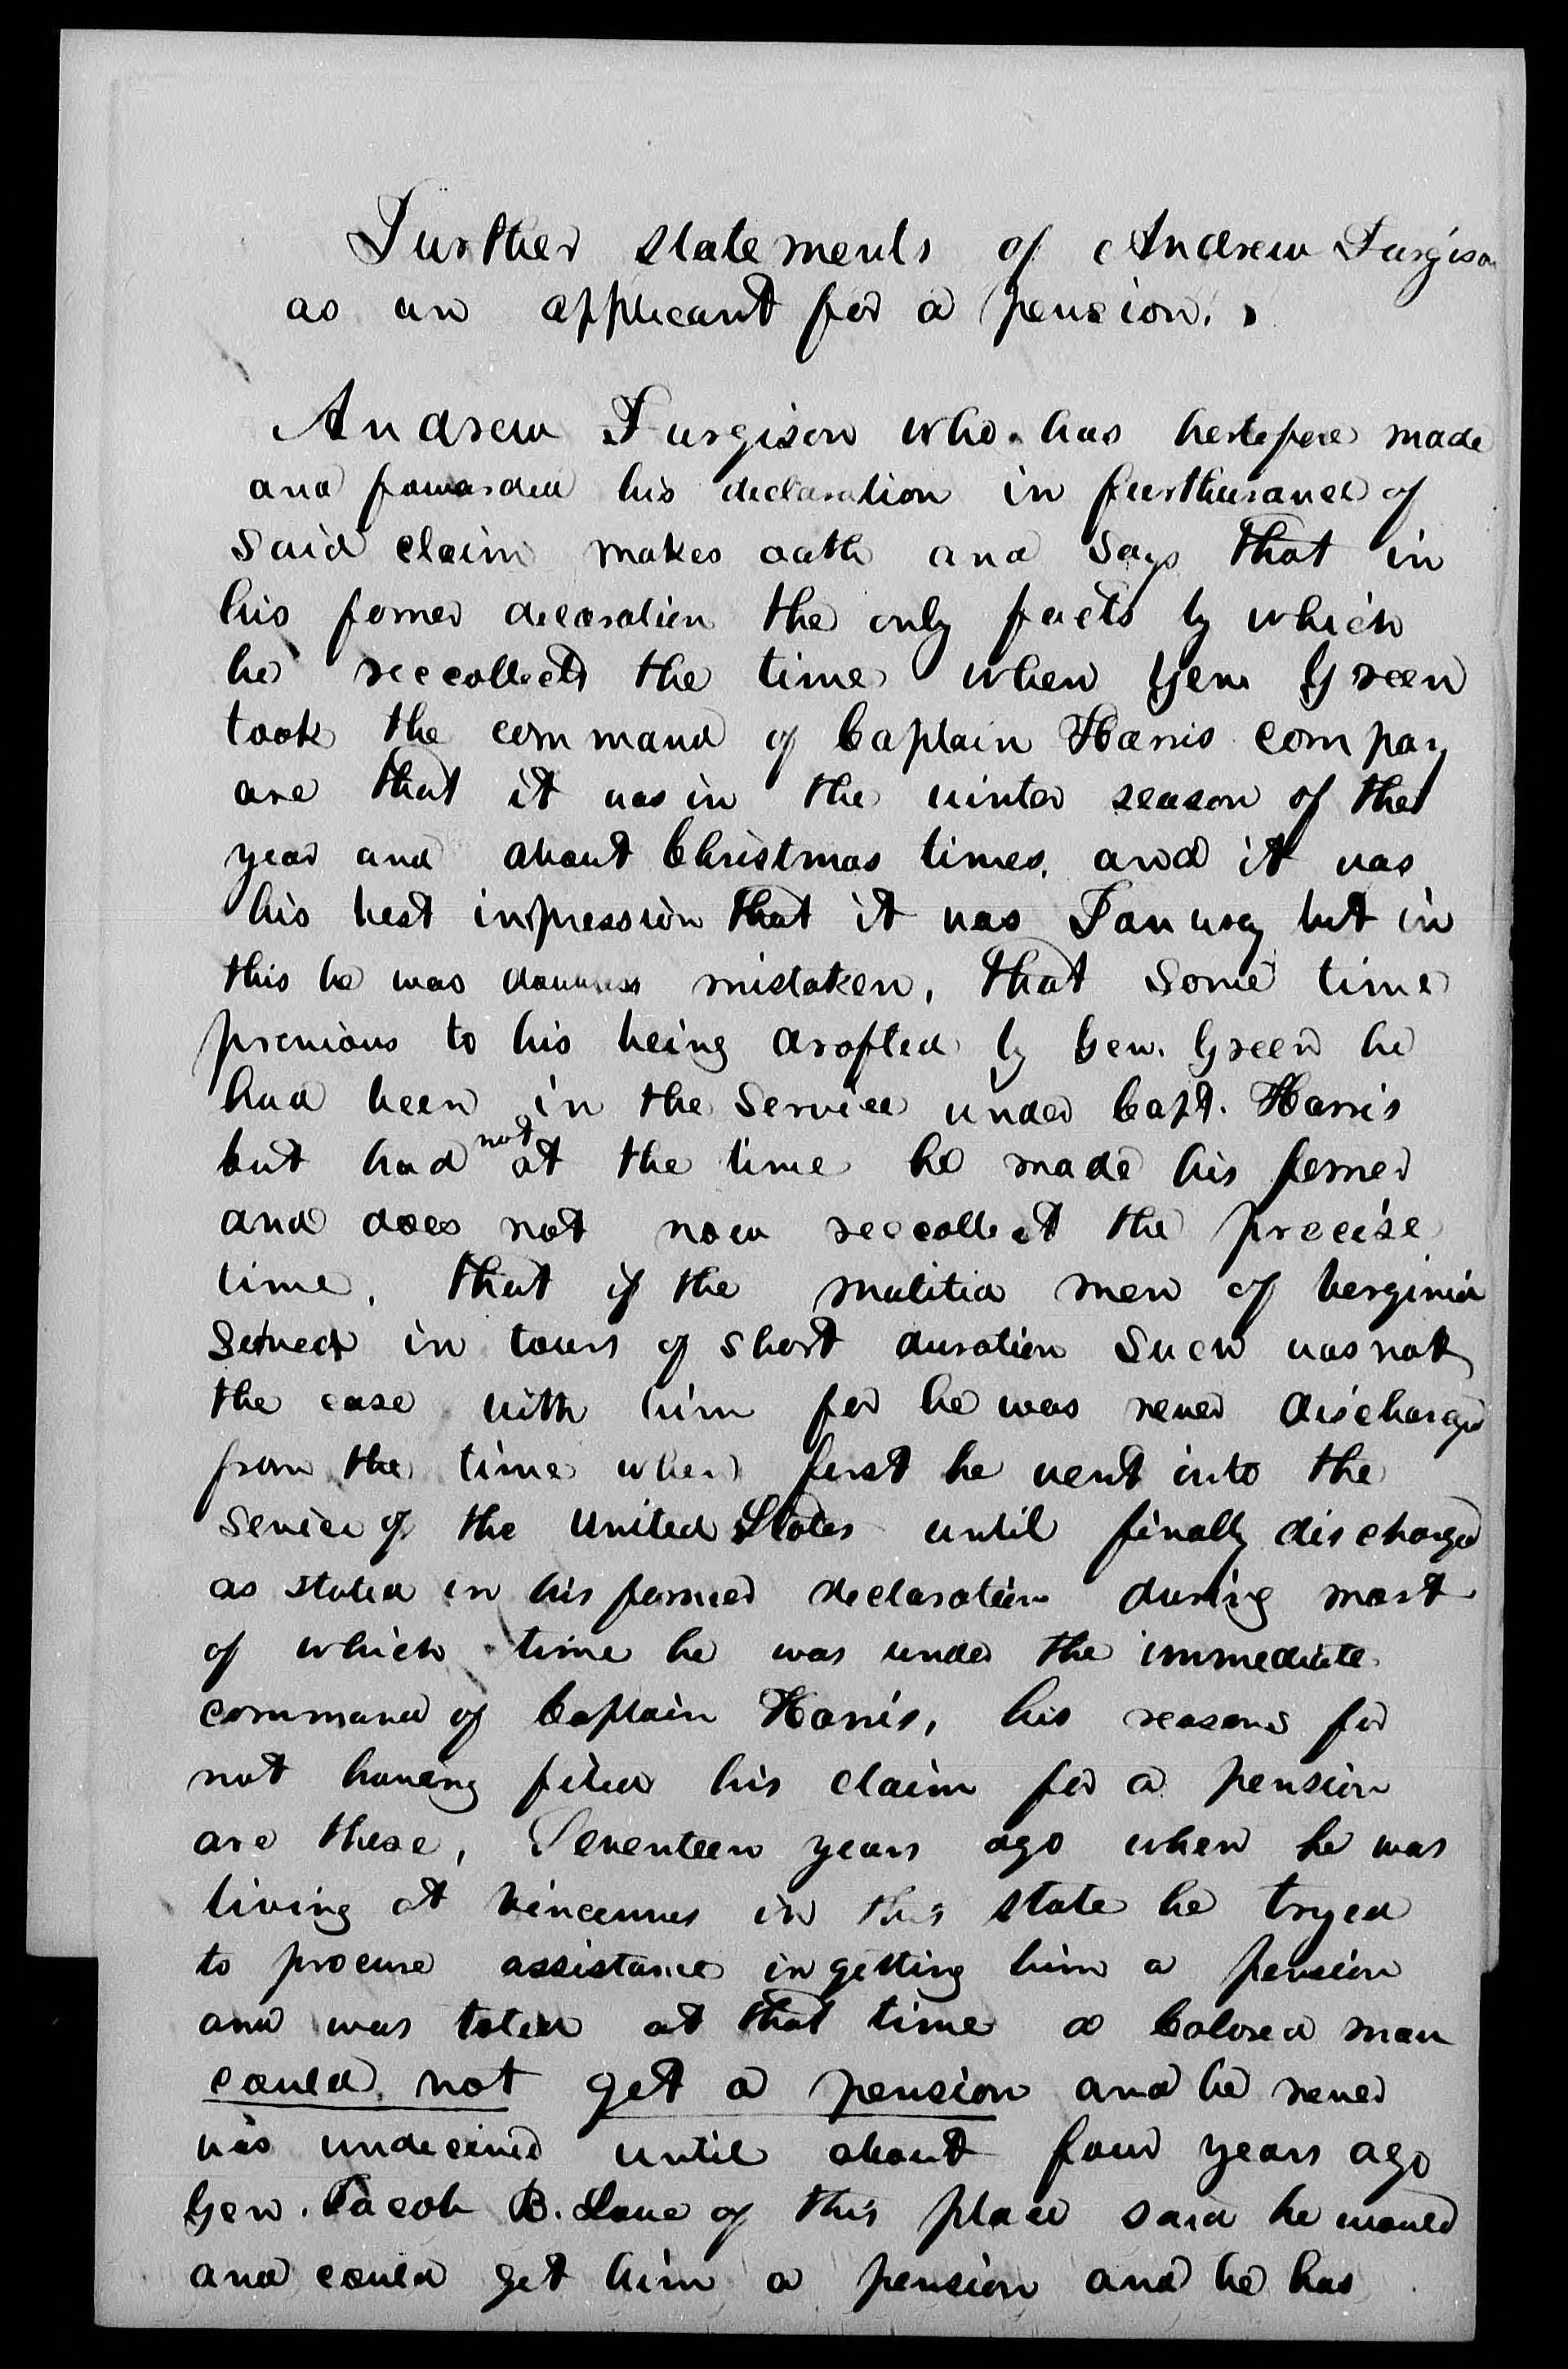 Further statements of Andrew Furgison
as an applicant for a pension.
Andrew Furgison who has hertofore made
and fowarded his declaration in furtherance of
said claim makes oath and says that in
his former declaration the only facts by which
he reccollects the time when Gen Green
took the command of Captain Harris compay
are that it was in the winter season of the
year and about Christmas times. and it was
his best impression that it was January but in
this he was mistaken. that some time
previous to his being drafted by Gen. Green he
had been in the service under Capt. Harris
but had not at the time he made his former
and does not now reccollect the precise
time. that if the malitia men of Verginia
Served in tours of short duration such was not
the case with him for he was never discharged
from the time when first he went into the
service of the United States until finally discharged
as stated in his former declaration during most
of which time he was under the immediate
command of Captain Harris, his reasons for
not having filed his claim for a pension
are these, Seventeen years ago when he was
living at Vincennes in this state he tryed
to procure assistance in getting him a pension
and was toled at that time a Colored man
could not get a pension and he never
was undeceived until about four years ago
Gen. Jacob B. Lowe of this place said he would
and could get him a pension and he has